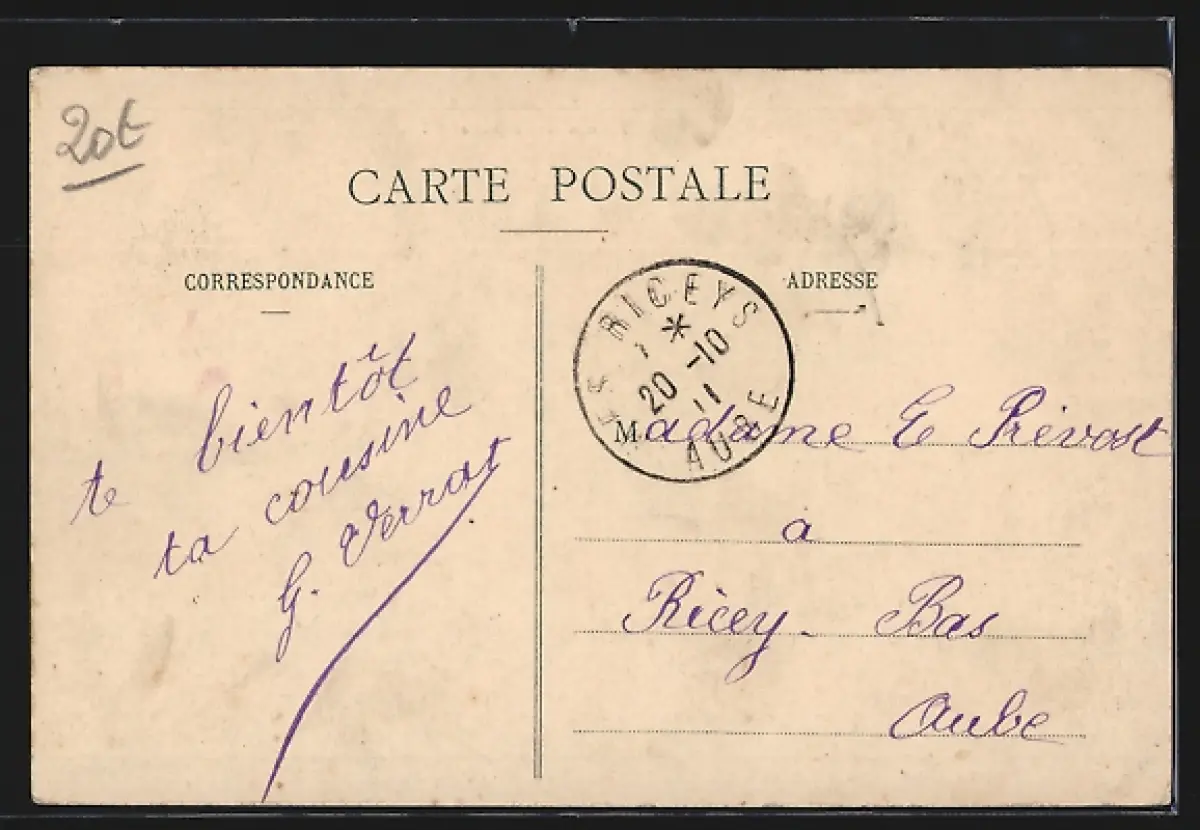 20t
CARTE POSTALE
CORRESPONDANCE
ADRESSE
te bientôt
ta cousine
G. Verrat
LES RICEYS
*
20 -10
11
AUBE
Madame E Prévost
à
Ricey-Bas
Aube